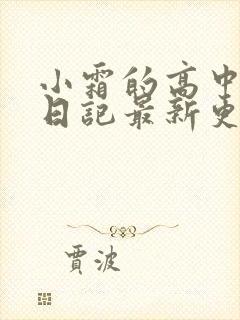 小霜的高中
日記最新更
賈波